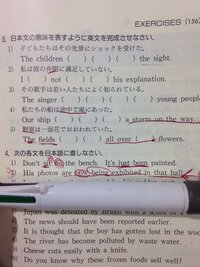 EXERCISES (156
3. 日本文の意味を表すように英文を完成させなさい。
1) 子どもたちはその光景にショックを受けた。
The children ( ) ( ) ( ) the sight.
2) 私は彼の弁明に満足していない。
I ( ) not ( ) ( ) his explanation.
3) その歌手は若い人たちによく知られている。
The singer ( ) ( ) ( ) young peopl
4) 私たちの船は途中で嵐にあった。
Our ship ( ) ( ) ( ) a storm on the way.
5) 野原は一面花でおおわれていた。
The fields ( ) ( ) all over ( ) flowers.
4. 次の各文を日本語に直しなさい。
1) Don't the bench. It's just been painted.
2) His photos are being exhibited in that hall.
Japan was defeated by
5) The news should have been reported earlier.
6) It is thought that the boy has gotten lost in the woo
7) The river has become polluted by waste water.
8) Cheese cuts easily with a knife.
Do you know why these frozen foods sell well?